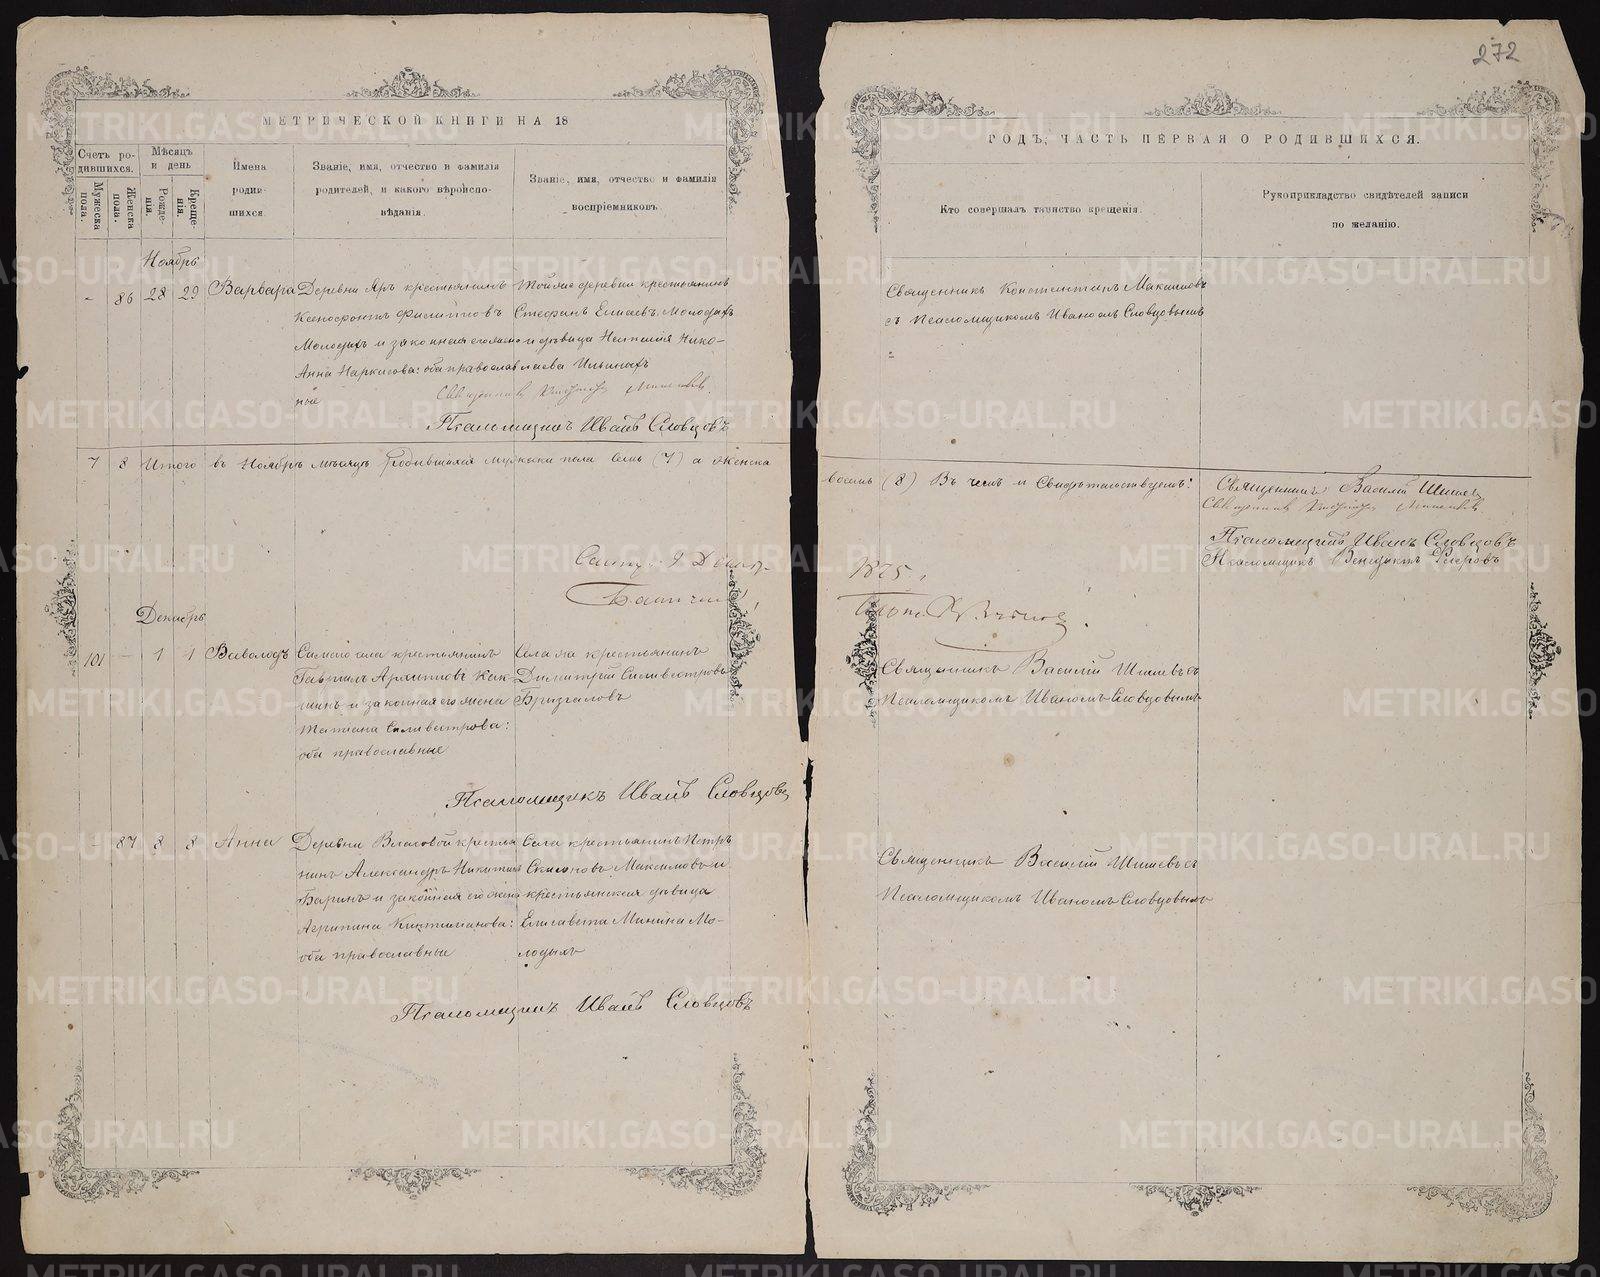 272
МЕТРИЧЕСКОЙ КНИГИ НА 18
ГОДЪ, ЧАСТЬ ПЕРВАЯ О РОДИВШИХСЯ.
Счетъ ро-
дившихся.
Мужеска
пола.
Женска
пола.
Мѣсяцъ
и день
Рожде-
нія.
Креще-
нія.
Имена
родив-
шихся.
Званіе, имя, отчество и фамилія
родителей, и какого вѣроиспо-
вѣданія.
Званіе, имя, отчество и фамилія
воспріемниковъ.
Кто совершалъ таинство крещенія.
Рукоприкладство свидѣтелей записи
по желанію.
Ноябрь
- 86 28 29 Варвара
Деревни Яръ крестьянинъ
Ксенофонтъ Филипповъ
Молодыхъ и законная его жена
Анна Наркисова: оба православ
ные
Той же деревни крестьянинъ
Стефанъ Молодыхъ
и дѣвица Нико-
лаева Ильиныхъ
Священникъ
Псаломщикъ Иванъ Словцовъ
Священникъ Константинъ
съ Псаломщикомъ Иваномъ Словцовымъ
7 8 Итого въ Ноябрѣ мѣсяцѣ родившихся мужска пола семь (7) а женска
восемь (8) Въ чемъ и Свидѣтельствуемъ:
Священникъ Василій Шишевъ
Священникъ
Псаломщикъ Иванъ Словцовъ
Псаломщикъ Венедиктъ
1875.
Декабрь
101 — 1 1 Всеволодъ
Самаго села крестьянинъ
Гавріилъ
и законная его жена
Татіана Селивестрова:
оба православные
Села крестьянинъ
Димитрій Силивестровъ
Псаломщикъ Иванъ Словцовъ
Священникъ Василій Шишевъ съ
Псаломщикомъ Иваномъ Словцовымъ
- 87 8 8 Анна
Деревни Власовой крестья
нинъ Александръ Никитинъ
Баринъ и законная его жена
Агрипина
оба православные
Села крестьянинъ Петръ
Максимовъ и
крестьянская дѣвица
Елисавета Минина Мо-
лодыхъ
Псаломщикъ Иванъ Словцовъ
Священникъ Василій Шишевъ съ
Псаломщикомъ Иваномъ Словцовымъ
METRIKI.GASO-URAL.RU